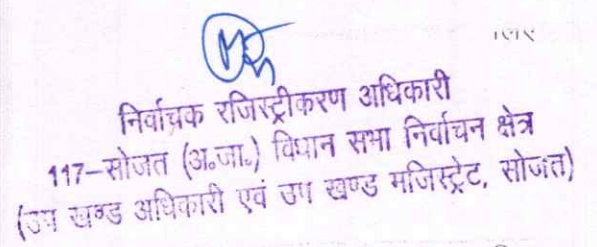 निर्वाचक रजिस्ट्रीकरण अधिकारी
117-सोजत (अ०जा०) विधान सभा निर्वाचन क्षेत्र
(उप खण्ड अधिकारी एवं उप खण्ड मजिस्ट्रेट, सोजत)